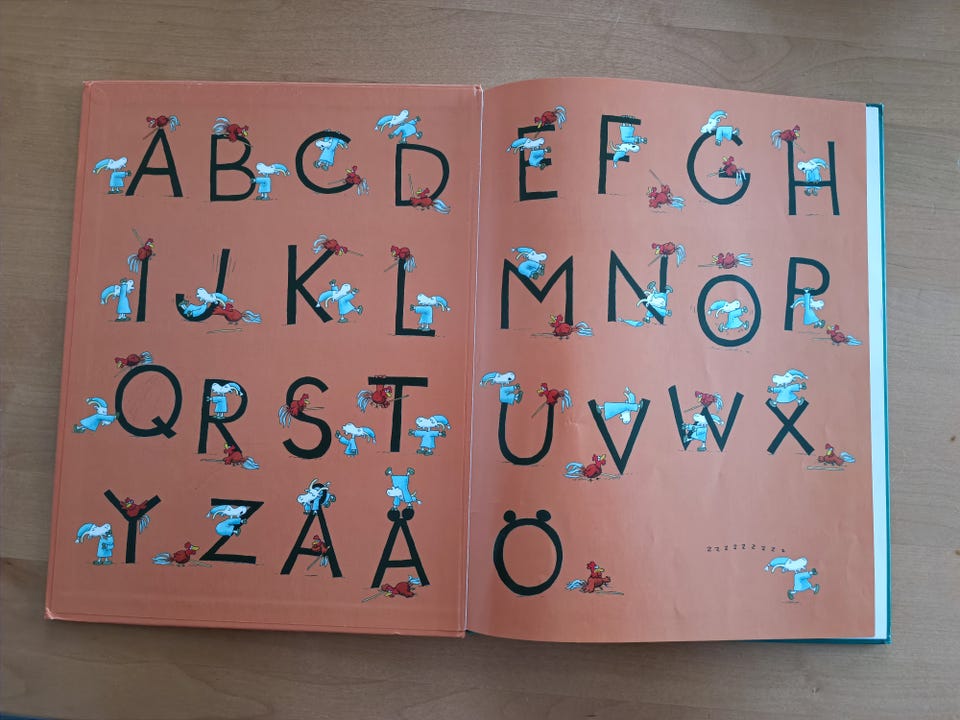 A B C D E F G H
I J K L M N O P
Q R S T U V W X
Y Z Å Ä Ö
z z z z z z z z z